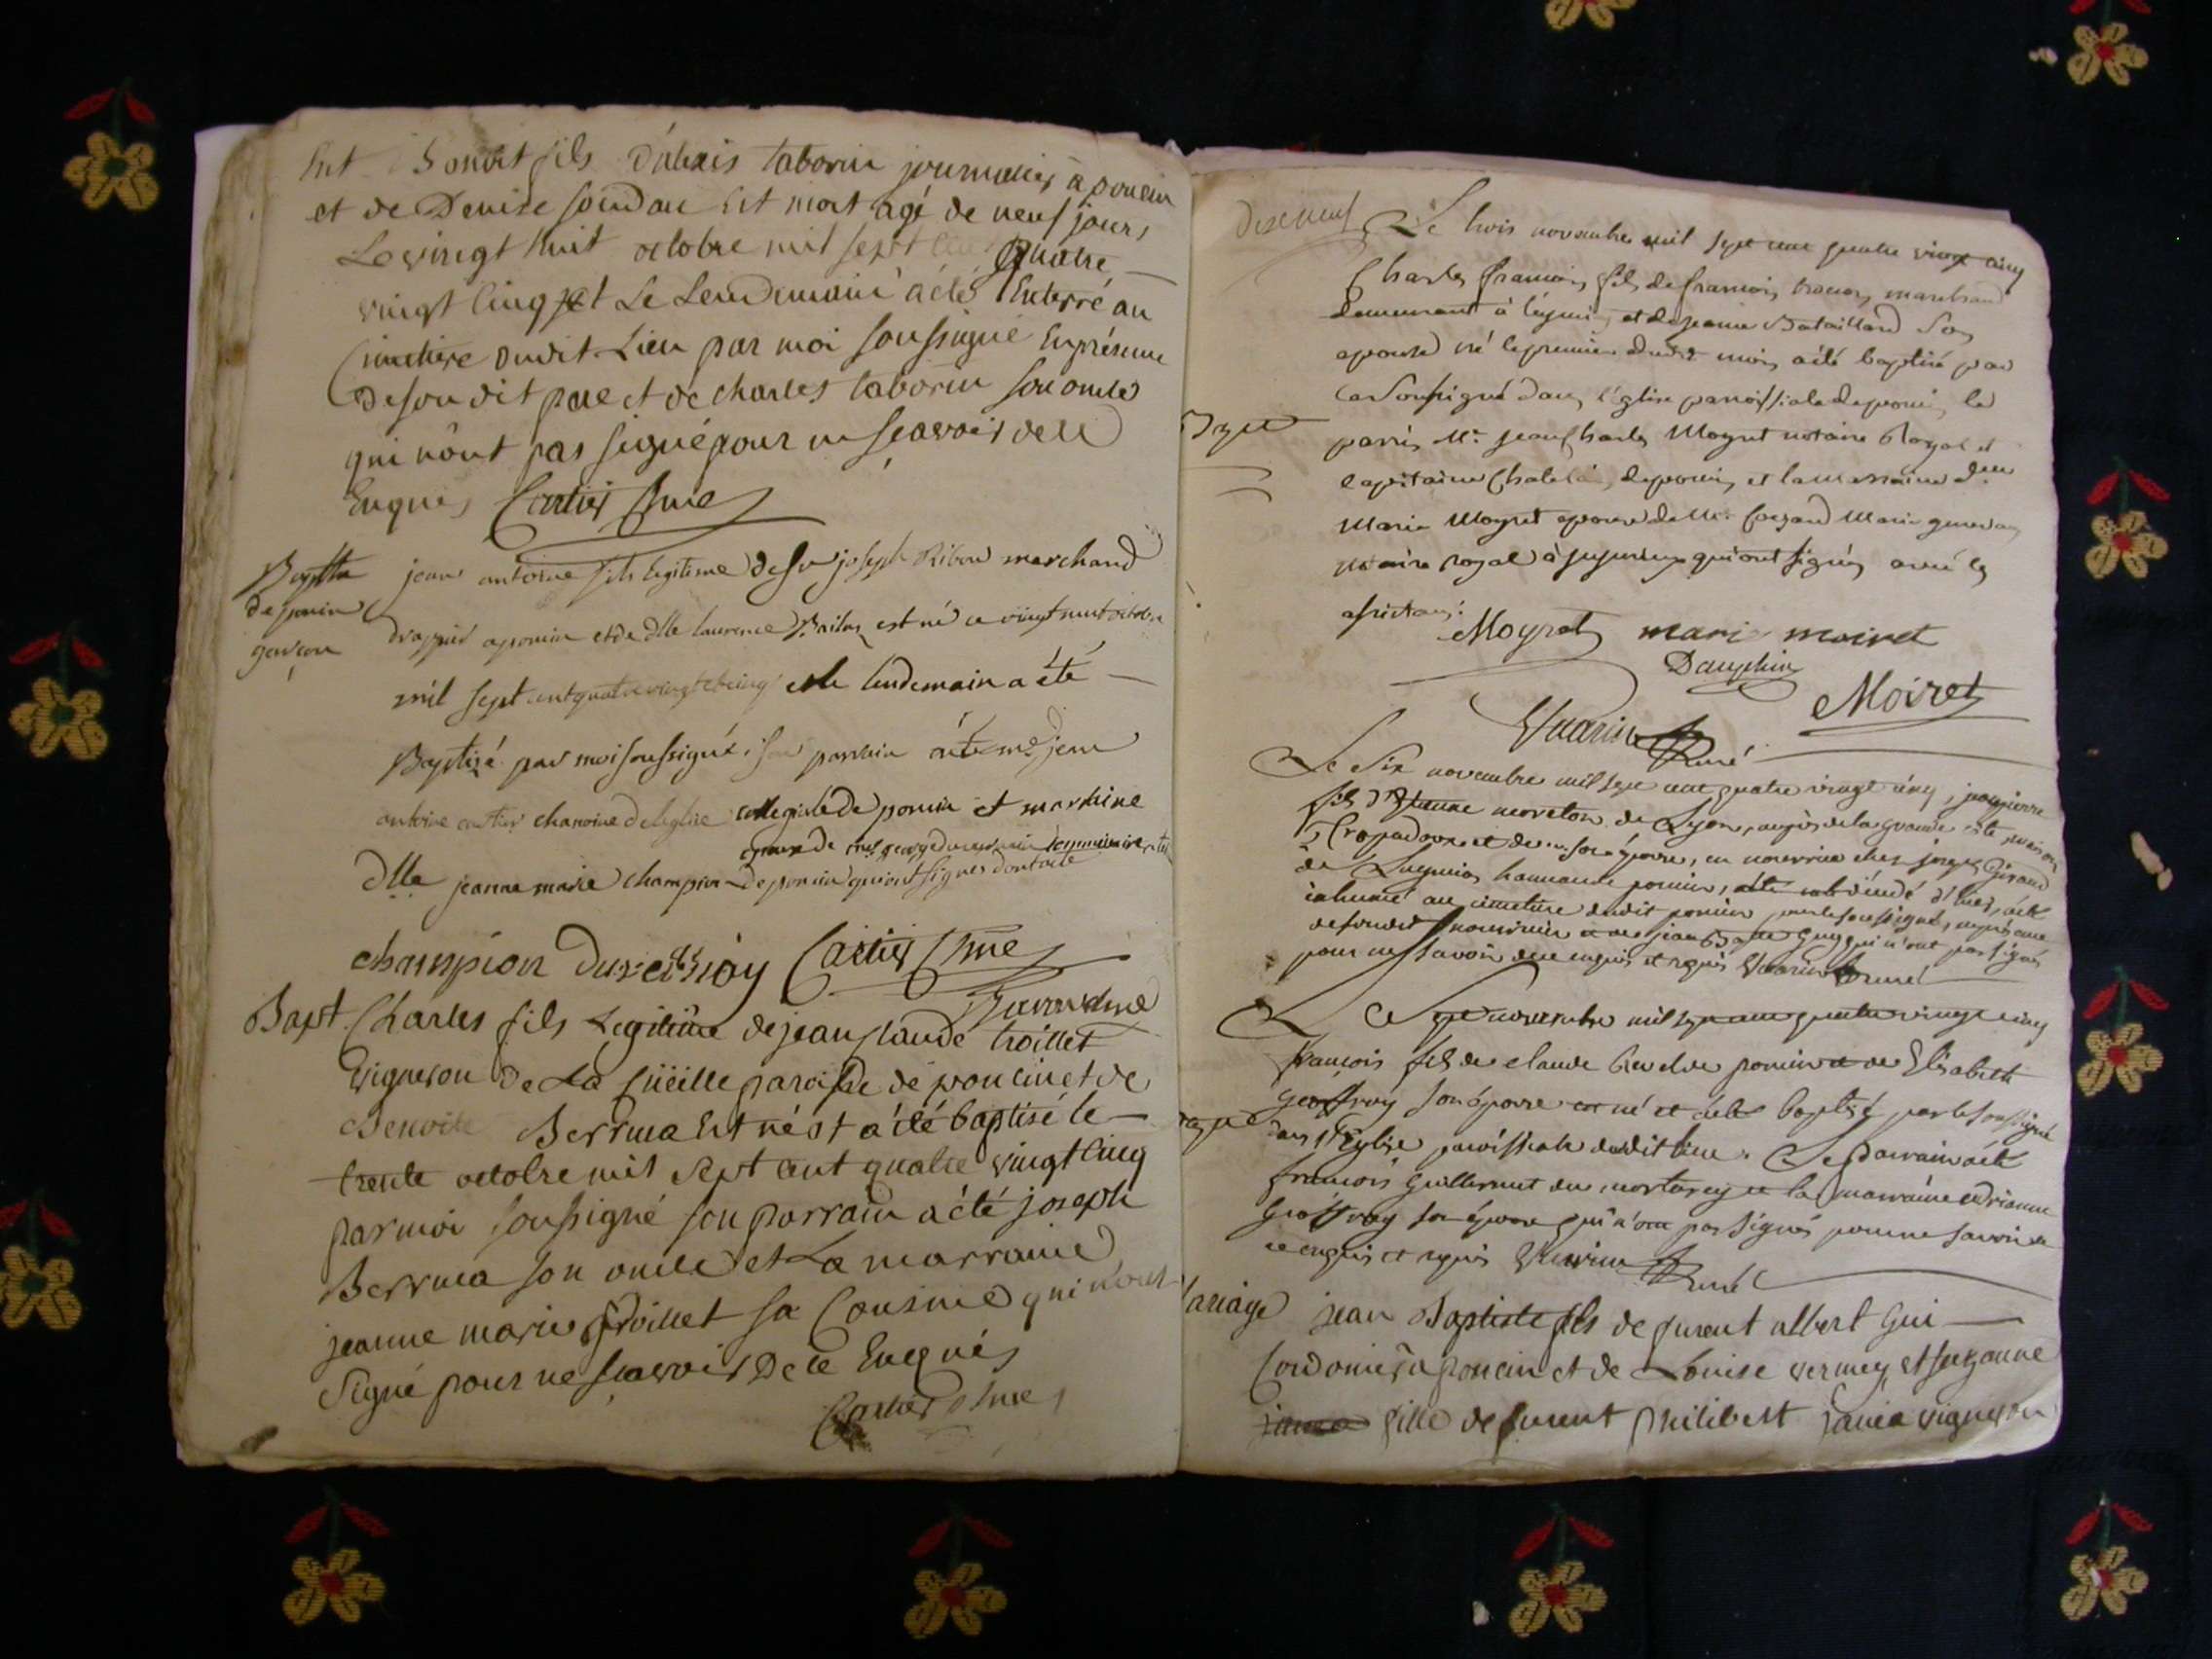 Ent Benoit fils d'alexis taborin journalier à poncin
et de Denise soudan est mort agé de neuf jours
Le vingt huit octobre mil sept cent quatre
vingt cinq et Le Lendemain a été Enterré au
Cimetiere dudit Lieu par moi soussigné En présence
de son dit pere et de charles taborin son oncle
qui n'ont pas signé pour ne sçavoir de ce
Enquis Cartier
Baptte jean antoine fils legitime de sr joseph Ribou marchand
de poncin drappier a poncin et de dlle laurence est né ce vingt huit octobre
garçon
mil sept cent quatre vingt et cinq et le lendemain a été
Baptisé par moi soussigné, son parrain a été me jean
antoine cartier chanoine de leglise collegiale de poncin et marraine
epouse de
dlle jeanne marie champion de poncin qui ont signés dont acte
champion Cartier
Bapt. Charles fils Legitime de jean claude troillet
vigneron de La Cüeille paroisse de poncin et de
Benoite Berrua Est né et a été baptisé le
trente octobre mil sept cent quatre vingt cinq
par moi soussigné son parrain a été joseph
Berrua son oncle et La marraine
jeanne marie troillet sa Cousine qui n'ont
signé pour ne sçavoir De ce Enquis
Cartier
Dixneuf Le trois novembre mil sept cent quatre vingt cinq
Charles françois fils de françois marchand
demeurant à et de jeanne Bataillard son
epouse né le premier dudit mois a été baptisé par
le soussigné dans l'église paroissiale de poncin, le
parrin Mr. jean Charles Moyret notaire Royal et
capitaine Chatelain de poncin, et la marraine dlle
Marie Moyret epouse de Mr. Marie
notaire royal à jujurieux qui ont signés avec les
assistans.
Moyret marie moiret
Dauphin
Moiret
Vuarin Curé
Le Six novembre mil sept cent quatre vingt cinq, jean pierre
fils d'Etienne moreton de Lyon, auprès de la grande côte maison
et de son épouse, en nourrice chez joseph Giraud
de Leymiat hameau de poncin, décédé d'hier, a été
inhumé au cimetière dudit poncin par le soussigné, en présence
de son dit nourricier et de jean Baptiste Guy qui n'ont pas signés
pour ne savoir de ce enquis et requis Vuarin Curé
Le sept novembre mil sept cent quatre vingt cinq
françois fils de claude de poncin et de Elisabeth
Geoffray son épouse est né et a été baptisé par le soussigné
dans l'Eglise paroissiale dudit lieu. Le parrain a été
françois Guillermet du mortarey et la marraine
Geoffray son épouse qui n'ont pas signés pour ne savoir de
ce enquis et requis Vuarin Curé
Mariage jean Baptiste fils de furent albert Gui
Cordonier à poncin et de Louise vermey et suzanne
fille de furent philibert janea vigneron